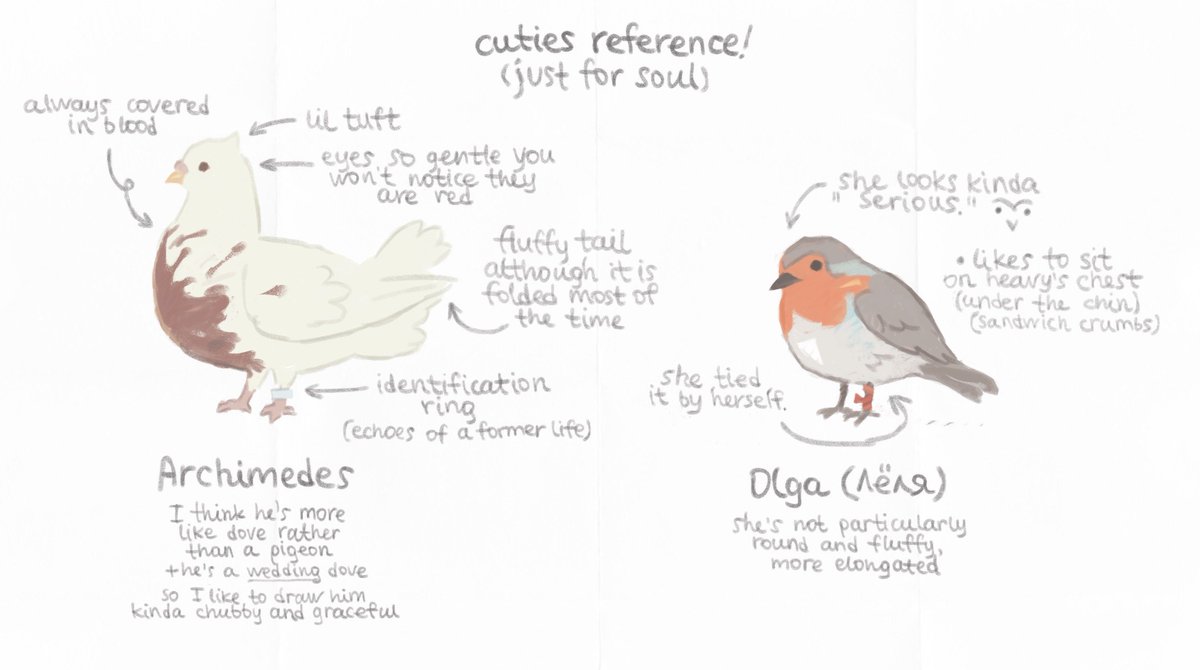 cuties reference!
(just for soul)
always covered
in blood
lil tuft
eyes so gentle you
won't notice they
are red
fluffy tail
although it is
folded most of
the time
identification
ring
(echoes of a former life)
Archimedes
I think he's more
like dove rather
than a pigeon
+he's a wedding dove
so I like to draw him
kinda chubby and graceful
she looks kinda
"serious."
• likes to sit
on heavy's chest
(under the chin)
(sandwich crumbs)
she tied
it by herself.
Olga (Лёля)
she's not particularly
round and fluffy,
more elongated